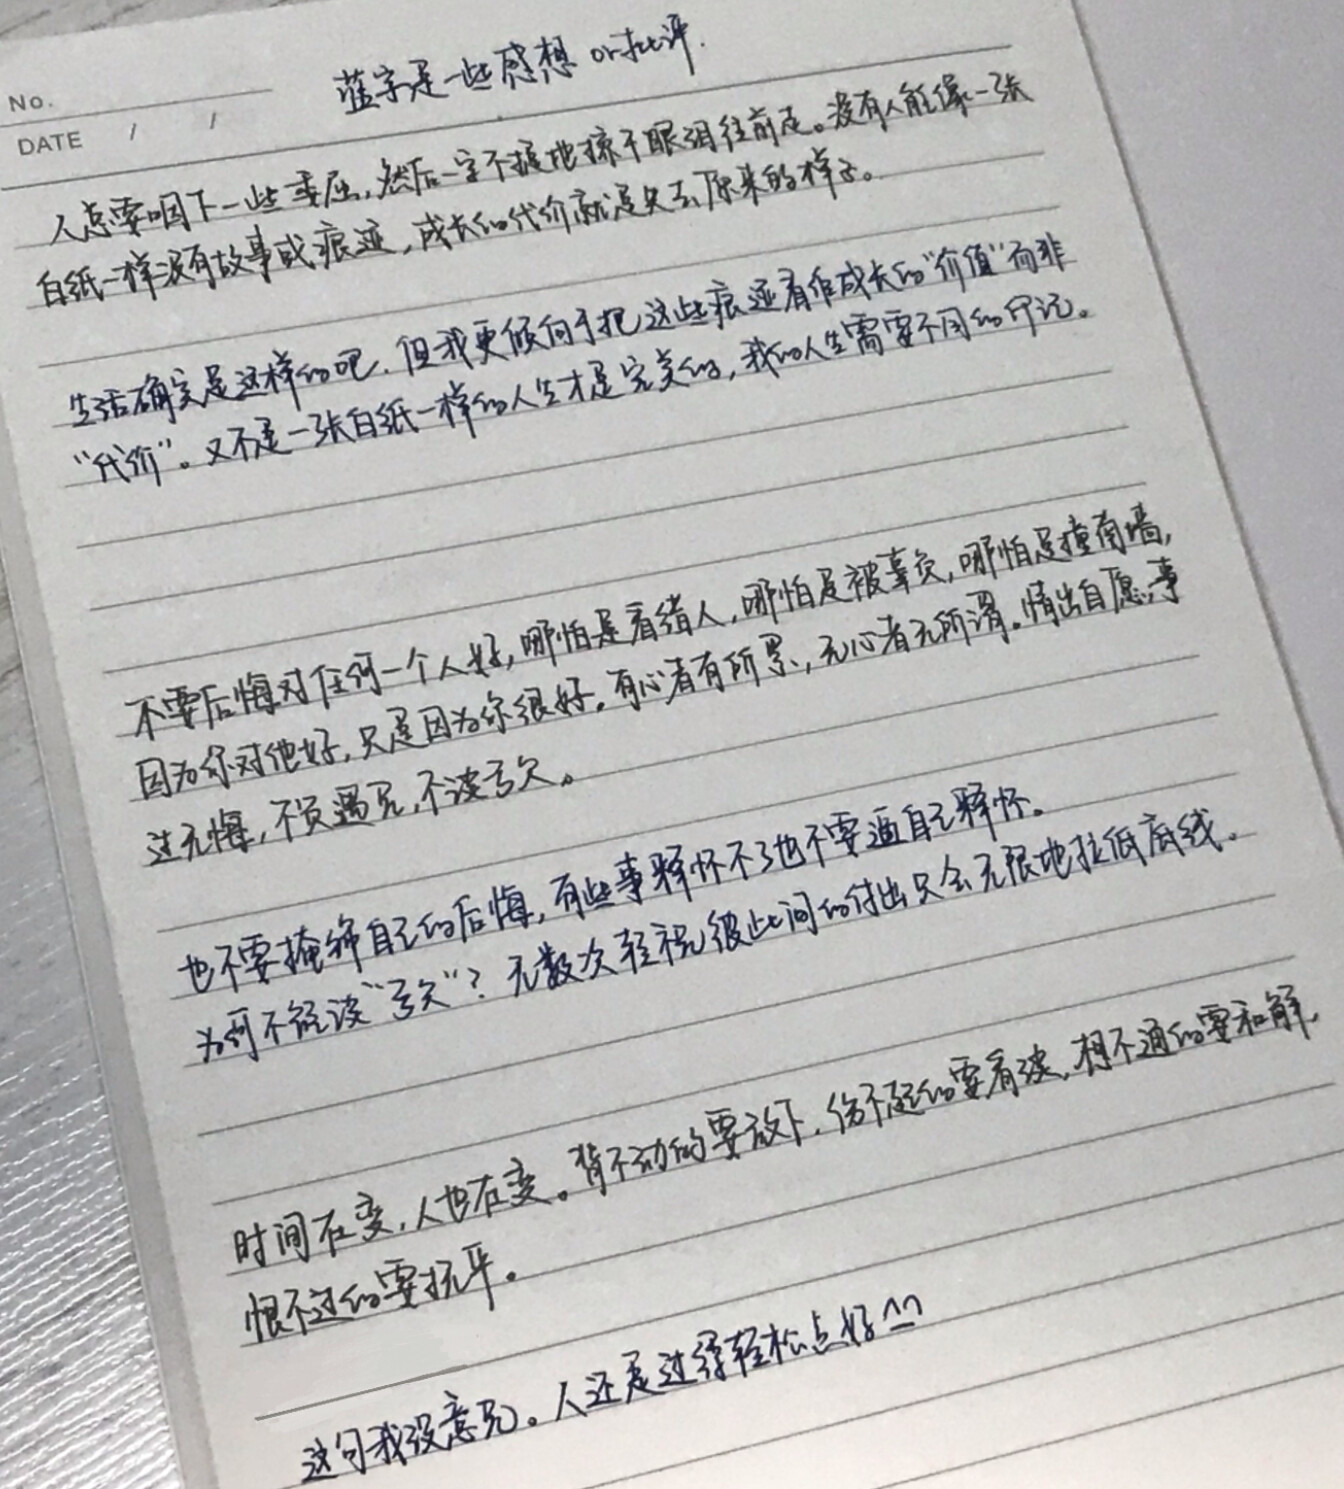 No.
DATE / /
蓝字是一些感想 or 批评.
人总要咽下一些委屈,然后一字不提地擦干眼泪往前走。没有人能像一张
白纸一样没有故事或痕迹,成长的代价就是失去原来的样子。
生活确实是这样的吧.但我更倾向于把这些痕迹看作成长的“价值”而非
“代价”。又不是一张白纸一样的人生才是完美的,我的人生需要不同的印记。
不要后悔对任何一个人好,哪怕是看错人,哪怕是被辜负,哪怕是撞南墙,
因为你对他好,只是因为你很好。有心者有所累,无心者无所谓。情出自愿,事
过无悔,不负遇见,不谈亏欠。
也不要掩饰自己的后悔,有些事释怀不了也不要逼自己释怀。
为何不能谈“亏欠”?无数次轻视彼此间的付出只会无限地拉低底线。
时间在变,人也在变。背不动的要放下,伤不起的要看淡,想不通的要和解,
恨不过的要抚平。
这句我没意见。人还是过得轻松点好^_^